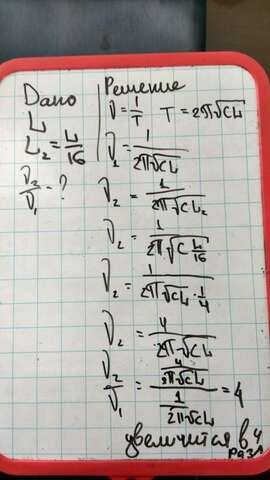 Дано
L
L₂ = L/16
ν₂/ν₁ = ?
Решение
ν = 1/T T = 2π√CL
ν₁ = 1/(2π√CL)
ν₂ = 1/(2π√CL₂)
ν₂ = 1/(2π√(C L/16))
ν₂ = 1/(2π√CL · 1/4)
ν₂ = 4/(2π√CL)
ν₂/ν₁ = (4/(2π√CL))/(1/(2π√CL)) = 4
увеличится в 4
раза